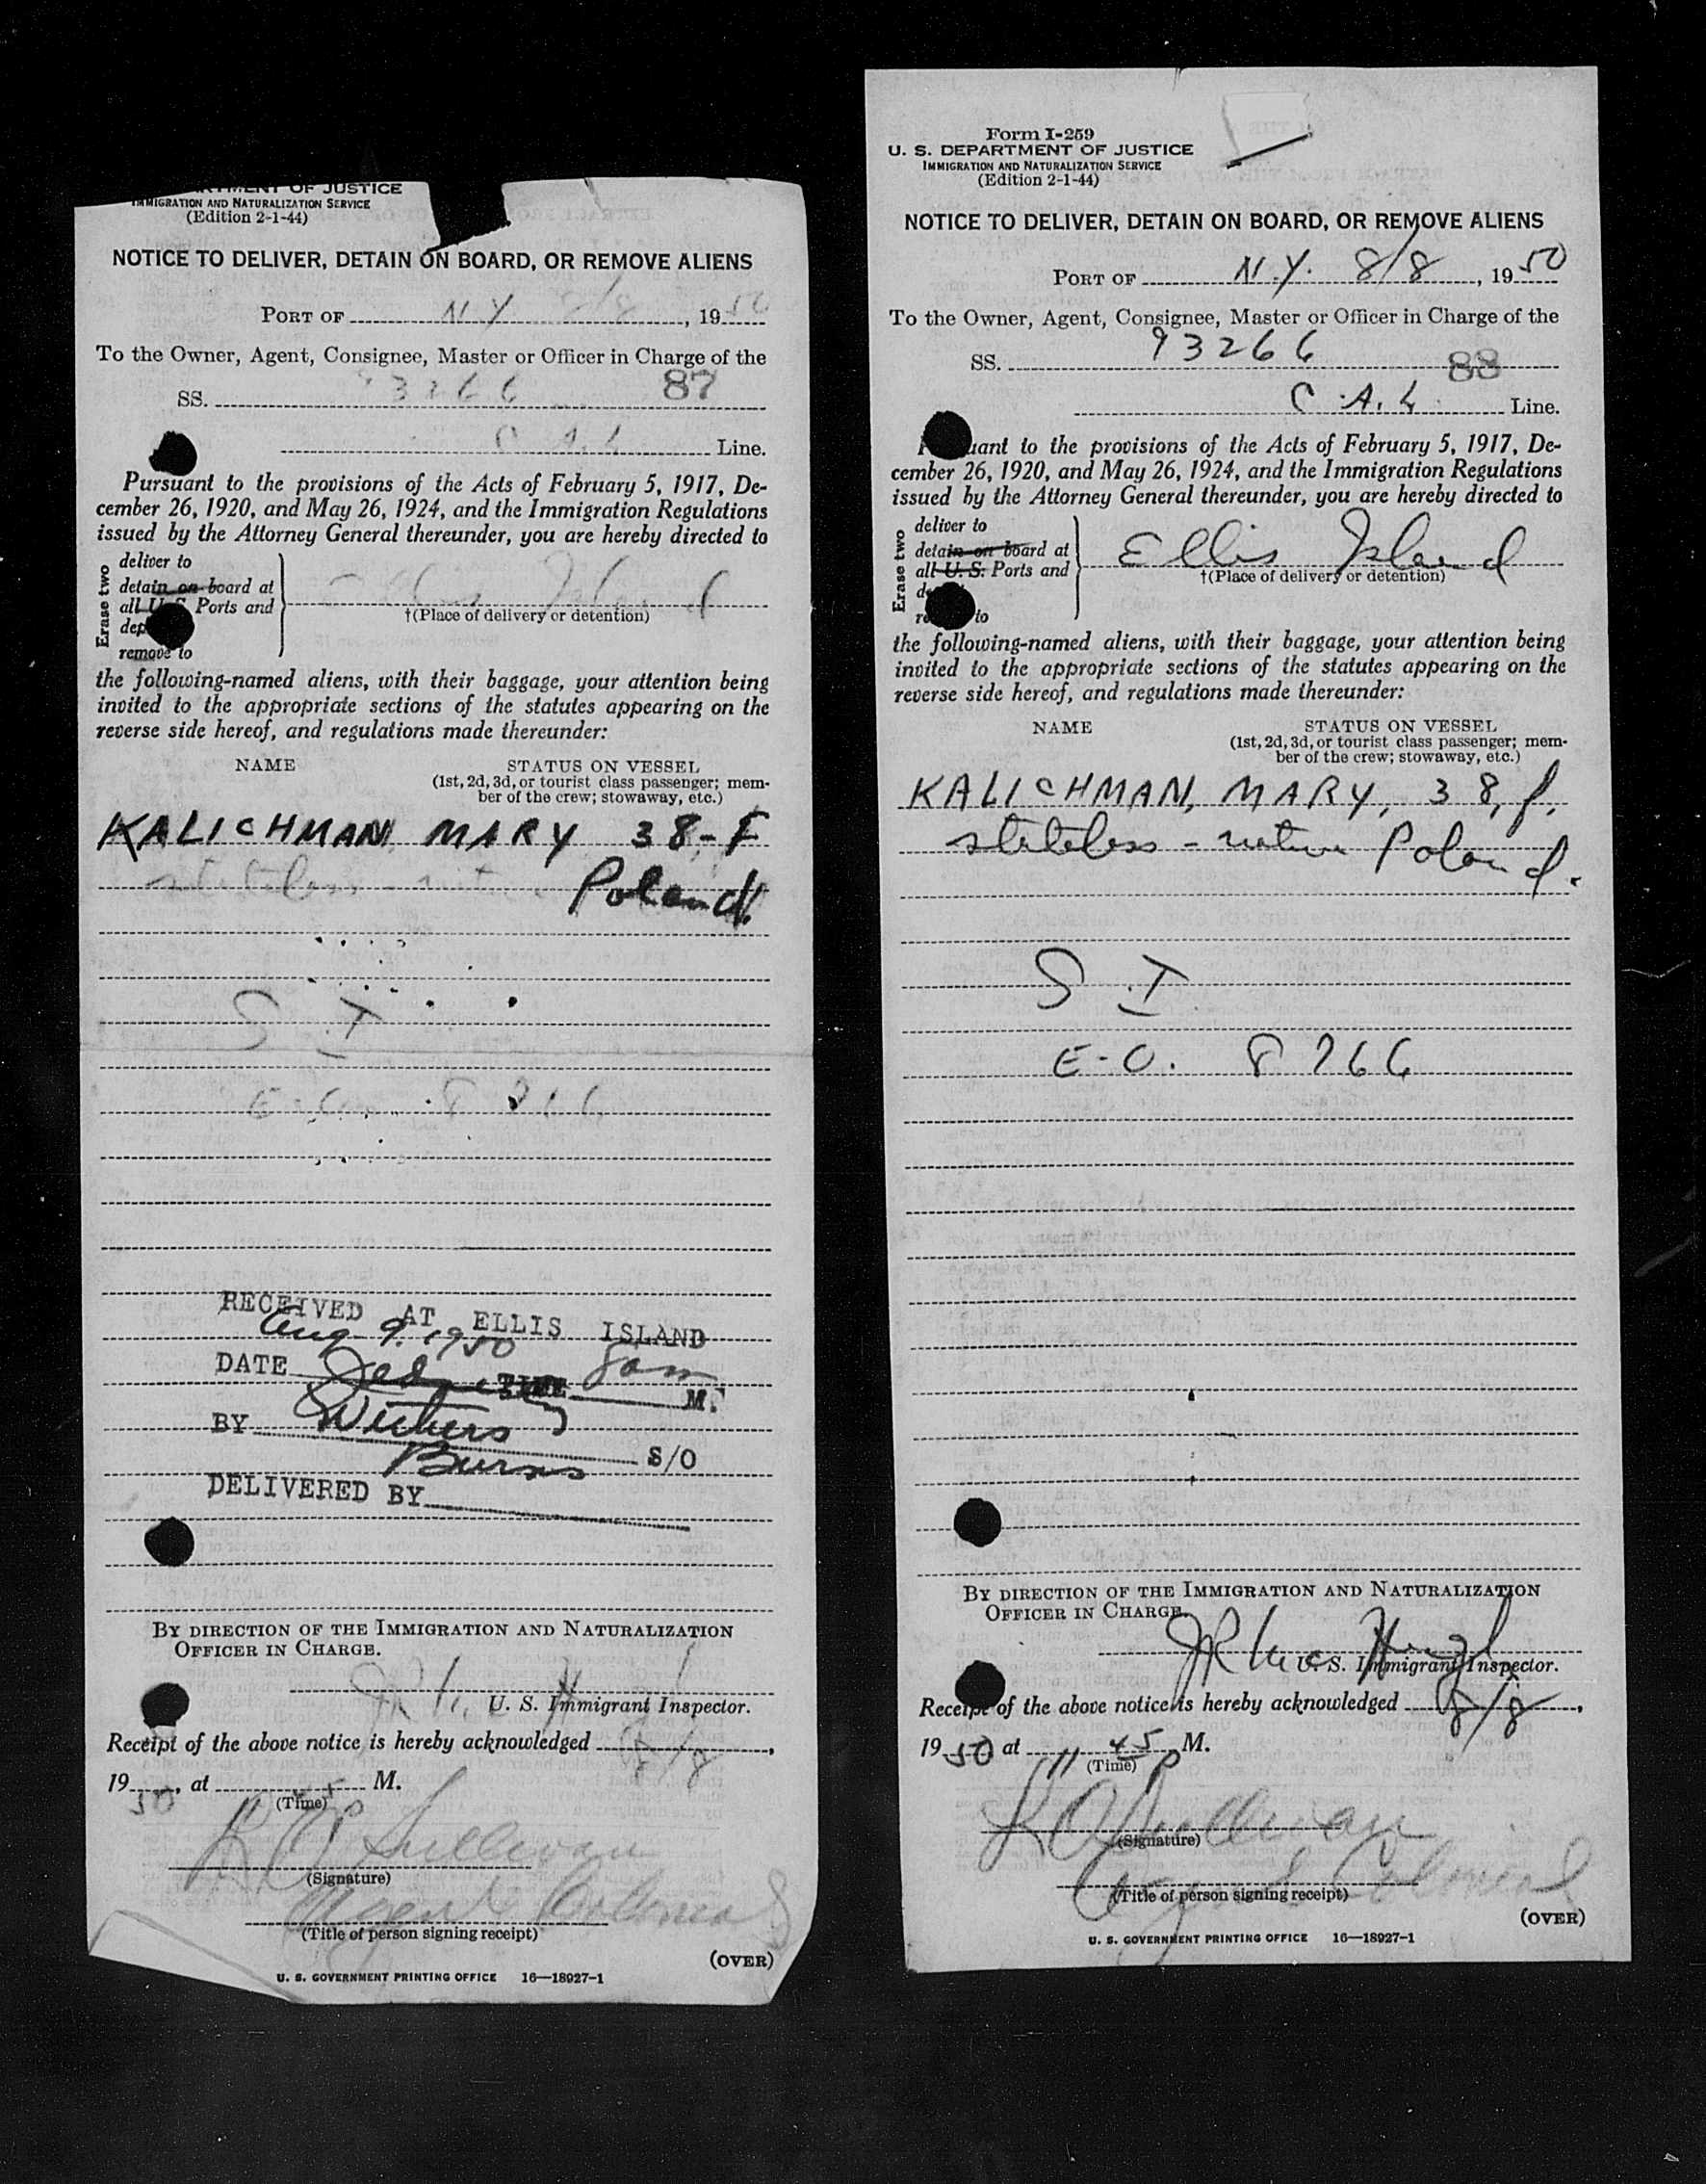 RTMENT OF JUSTICE
IMMIGRATION AND NATURALIZATION SERVICE
(Edition 2-1-44)
NOTICE TO DELIVER, DETAIN ON BOARD, OR REMOVE ALIENS
PORT OF N Y 8/8, 1950
To the Owner, Agent, Consignee, Master or Officer in Charge of the
SS. 93266 87
C A. L Line.
Pursuant to the provisions of the Acts of February 5, 1917, De-
cember 26, 1920, and May 26, 1924, and the Immigration Regulations
issued by the Attorney General thereunder, you are hereby directed to
Erase two
deliver to
detain on board at
all U. S. Ports and
dep
remove to
Ellis Island
†(Place of delivery or detention)
the following-named aliens, with their baggage, your attention being
invited to the appropriate sections of the statutes appearing on the
reverse side hereof, and regulations made thereunder:
NAME STATUS ON VESSEL
(1st, 2d, 3d, or tourist class passenger; mem-
ber of the crew; stowaway, etc.)
KALICHMAN MARY 38-F
stateless - native Poland.
S I
E-O. 8766
RECEIVED AT ELLIS ISLAND
Aug 9. 1950
DATE TIME 8am M.
BY Withers
Burns S/O
DELIVERED BY
BY DIRECTION OF THE IMMIGRATION AND NATURALIZATION
OFFICER IN CHARGE.
U. S. Immigrant Inspector.
Receipt of the above notice is hereby acknowledged 8/8,
1950, at 11 45 P M.
(Time)
Sullivan
(Signature)
Agent Colonial
(Title of person signing receipt)
(OVER)
U. S. GOVERNMENT PRINTING OFFICE 16—18927-1
Form I-259
U. S. DEPARTMENT OF JUSTICE
IMMIGRATION AND NATURALIZATION SERVICE
(Edition 2-1-44)
NOTICE TO DELIVER, DETAIN ON BOARD, OR REMOVE ALIENS
PORT OF N.Y. 8/8, 1950
To the Owner, Agent, Consignee, Master or Officer in Charge of the
SS. 93266 88
C.A.L. Line.
uant to the provisions of the Acts of February 5, 1917, De-
cember 26, 1920, and May 26, 1924, and the Immigration Regulations
issued by the Attorney General thereunder, you are hereby directed to
Erase two
deliver to
detain on board at
all U. S. Ports and
de
re to
Ellis Island
†(Place of delivery or detention)
the following-named aliens, with their baggage, your attention being
invited to the appropriate sections of the statutes appearing on the
reverse side hereof, and regulations made thereunder:
NAME STATUS ON VESSEL
(1st, 2d, 3d, or tourist class passenger; mem-
ber of the crew; stowaway, etc.)
KALICHMAN, MARY, 38, f.
stateless - native Poland.
S.I.
E-O. 8766
BY DIRECTION OF THE IMMIGRATION AND NATURALIZATION
OFFICER IN CHARGE.
U. S. Immigrant Inspector.
Receipt of the above notice is hereby acknowledged 8/8,
1950 at 11 45 P M.
(Time)
Sullivan
(Signature)
Agent Colonial
(Title of person signing receipt)
(OVER)
U. S. GOVERNMENT PRINTING OFFICE 16—18927-1